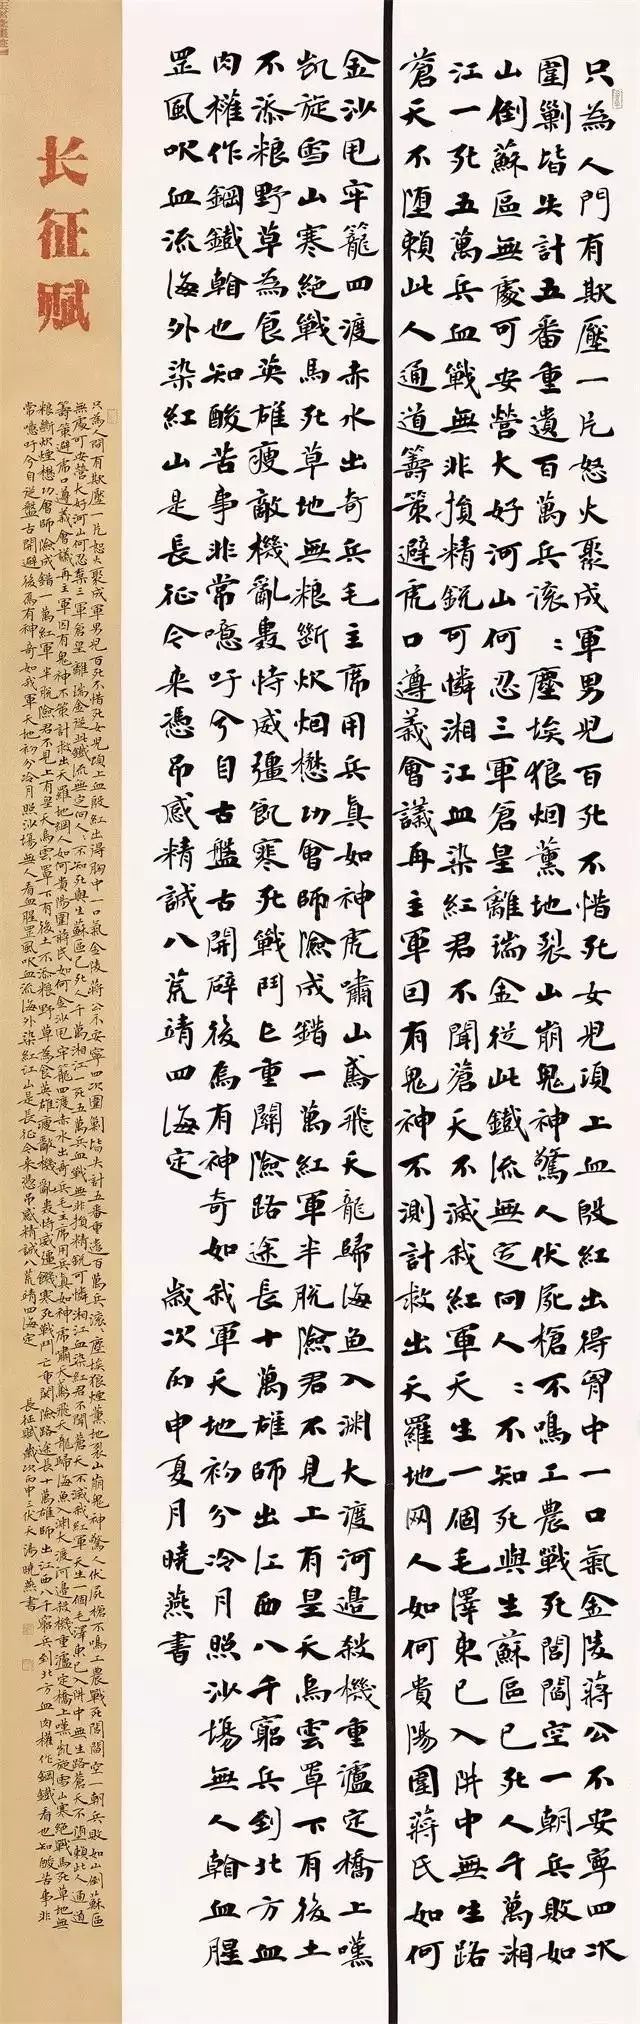 只為人門有欺壓一片怒火聚成軍男兒百死不惜死女兒項上血殷紅出得胷中一口氣金陵蔣公不安寧四次
圍剿皆失計五番重遺百萬兵滾〻塵埃狼烟薰地裂山崩鬼神驚人伏屍槍不鳴工農戰死閭閻空一朝兵敗如
山倒蘇區無處可安營大好河山何忍三軍倉皇離瑞金從此鐵流無定向人〻不知死與生蘇區已死人千萬湘
江一死五萬兵血戰無非損精銳可憐湘江血染紅君不聞蒼天不滅我紅軍天生一個毛澤東已入阱中無生路
蒼天不墮賴此人通道籌策避虎口遵義會議再主軍因有鬼神不測計救出天羅地网人如何貴陽圍蔣氏如何
金沙甩牢籠四渡赤水出奇兵毛主席用兵真如神虎嘯山鳶飛天龍歸海魚入淵大渡河邊殺機重瀘定橋上嘆
凱旋雪山寒絕戰馬死草地無粮斷炊烟懋功會師險成錯一萬紅軍半脫險君不見上有星天烏雲罩下有後土
不添粮野草為食英雄瘦敵機亂轟恃威彊飢寒死戰鬥亡重關險路途長十萬雄師出江西八千窮兵到北方血
肉權作鋼鐵翰也知酸苦事非常噫吁兮自古盤古開辟後焉有神奇如我軍天地初分冷月照沙場無人翰血腥
罡風吹血流海外染紅山是長征今來憑吊感精誠八荒靖四海定 歲次丙申夏月曉燕書
长征赋
只為人間有欺壓一片怒火聚成軍男兒百死不惜死女兒項上血殷紅出得胸中一口氣金陵蔣公不安寧四次圍剿皆失計五番重遺百萬兵滾〻塵埃狼煙薰地裂山崩鬼神驚人伏屍槍不鳴工農戰死閭閻空一朝兵敗如山倒蘇區
無處可安營大好河山何忍棄三軍倉皇離瑞金從此鐵流無定向人〻不知死與生蘇區已死人千萬湘江一死五萬兵血戰無非損精銳可憐湘江血染紅君不聞蒼天不滅我紅軍天生一個毛澤東已入阱中無生路蒼天不墮賴此人通道
籌策避虎口遵義會議再主軍因有鬼神不策計救出天羅地網人如何貴陽圍蔣氏如何金沙甩牢籠四渡赤水出奇兵毛主席用兵真如神虎嘯天鳶飛天龍歸海魚入淵大渡河邊殺機重瀘定橋上嘆凱旋雪山寒絕戰馬死草地無
粮斷炊煙懋功會師險成錯一萬紅軍半脫險君不見上有星天烏雲罩下有後土不添粮野草為食英雄瘦敵機亂轟恃威彊饑寒死戰鬥亡重關險路途長十萬雄師出江西八千窮兵到北方血肉權作鋼鐵看也知酸苦事非
常噫吁兮自從盤古開避後焉有神奇如我軍天地初分冷月照沙場無人看血腥罡風吹血流海外染紅江山是長征今來憑吊感精誠八荒靖四海定 長征賦歲次丙申三伏天濤曉燕書